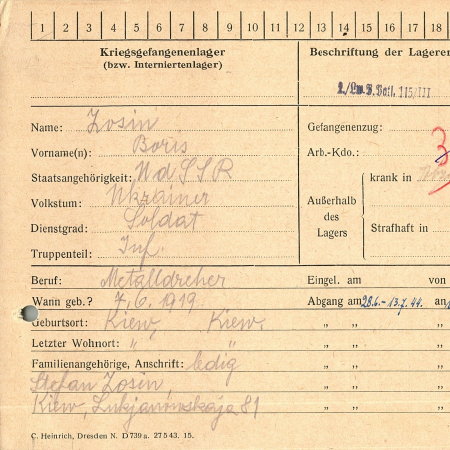 1 2 3 4 5 6 7 8 9 10 11 12 13 14 15 16 17 18
Kriegsgefangenenlager
(bzw. Interniertenlager)
Name: Zosin
Vorname(n): Boris
Staatsangehörigkeit: UdSSR
Volkstum: Ukrainer
Dienstgrad: Soldat
Truppenteil: Inf.
Beschriftung der Lagerer
115/III
Gefangenenzug:
Arb.-Kdo.: 3
Außerhalb des Lagers
krank in
Strafhaft in
Beruf: Metalldreher
Wann geb.? 7.6.1919.
Geburtsort: Kiew, Kiew.
Letzter Wohnort: " "
Familienangehörige, Anschrift: ledig
Stefan Zosin,
Kiew, Lukjanowskaja 81
Eingel. am von
Abgang am 28.6.-13.7.44. an
" "
" "
" "
C. Heinrich, Dresden N. D 739 a. 275 43. 15.